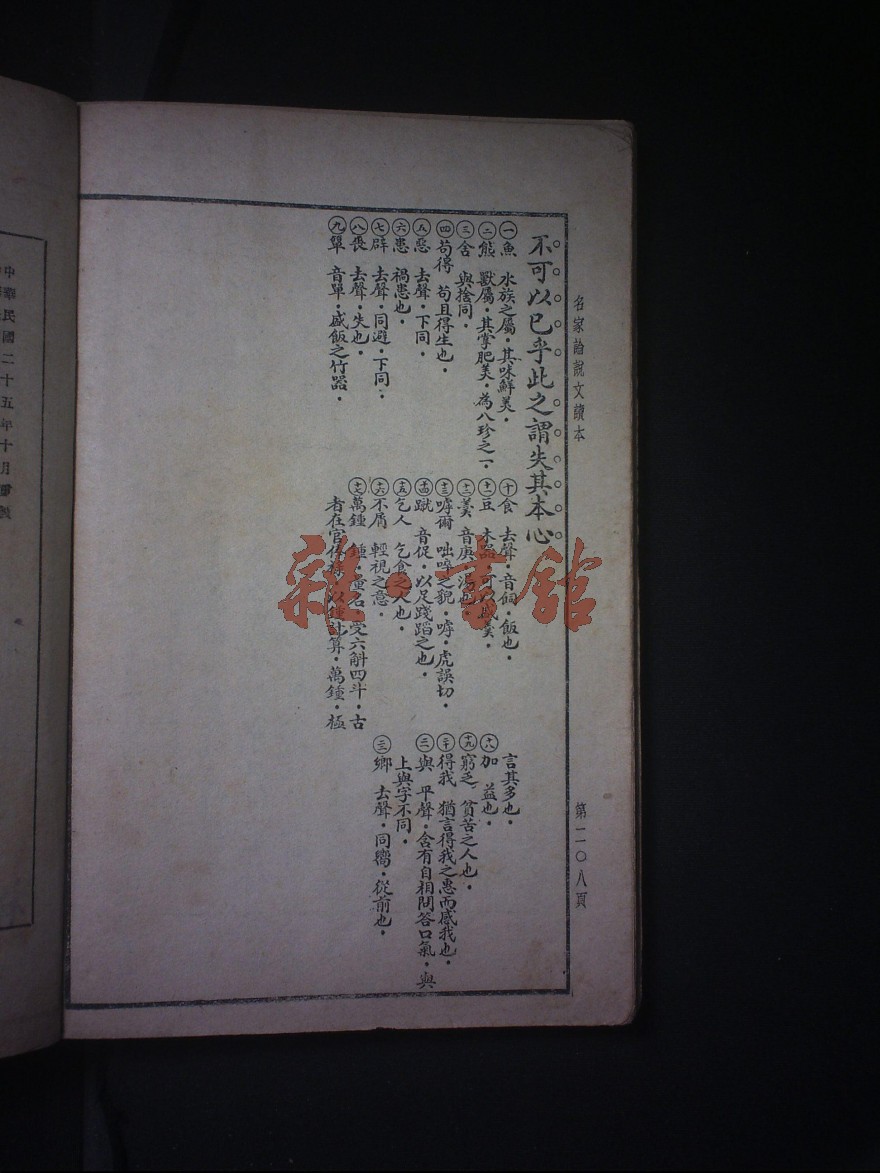 名家論說文讀本
第二〇八頁
不可以已乎此之謂失其本心
㊀魚 水族之屬·其味鮮美·
㊁熊 獸屬·其掌肥美·為八珍之一·
㊂舍 與捨同·
㊃苟得 苟且得生也·
㊄惡 去聲·下同·
㊅患 禍患也·
㊆辟 去聲·同避·下同·
㊇喪 去聲·失也·
㊈簞 音單·盛飯之竹器·
㊉食 去聲·音飼·飯也·
十一豆 木器·可以盛羹·
十二羹 音庚·湯也·
十三嘑爾 咄啐之貌·嘑·虎誤切·
十四蹴 音促·以足踐蹈之也·
十五乞人 乞食之人也·
十六不屑 輕視之意·
十七萬鍾 鍾·量名·受六斛四斗·古
者在官俸祿·以鍾計算·萬鍾·極
言其多也·
十八加 益也·
十九窮乏 貧苦之人也·
二十得我 猶言得我之惠而感我也·
二一與 平聲·含有自相問答口氣·與
上與字不同·
二二鄉 去聲·同嚮·從前也·
中華民國二十五年十月重
雜·書館